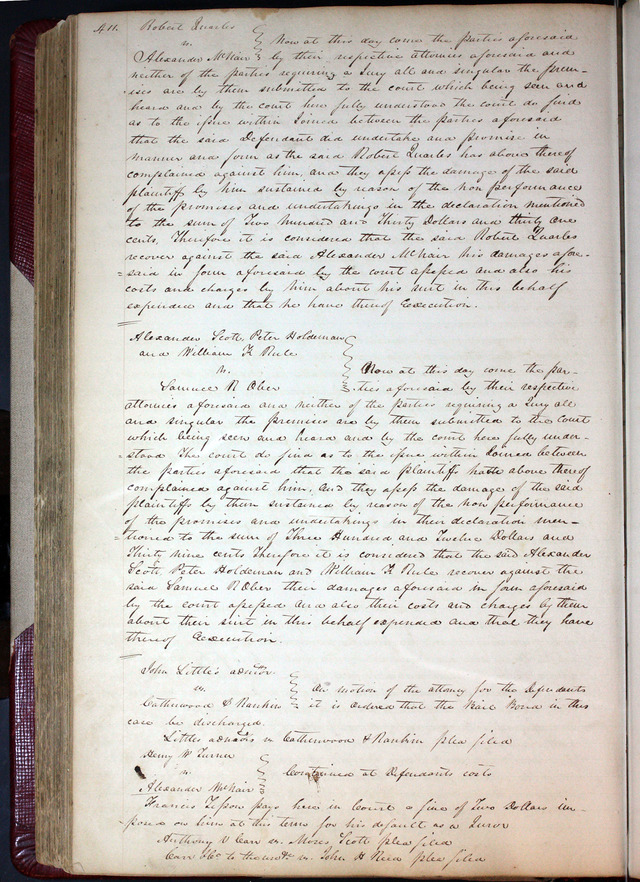 411. Robert Quarles
vs. Now at this day come the parties aforesaid
Alexander McNair by their respective attornies aforesaid and
neither of the parties requiring a Jury all and singular the prem-
ises are by them submitted to the court which being seen and
heard and by the court here fully understood the court do find
as to the issue within Joined between the parties aforesaid
that the said Defendant did undertake and promise in
manner and form as the said Robert Quarles has above thereof
complained against him, and they assess the damage of the said
plaintiff by him sustained by reason of the non performance
of the promises and undertakings in the declaration mentioned
to the sum of Two Hundred and Thirty Dollars and thirty one
cents, Therefore it is considered that the said Robert Quarles
recover against the said Alexander McNair his damages afore-
said in form aforesaid by the court assessed and also his
costs and charges by him about his suit in this behalf
expended and that he have thereof Execution.
Alexander Scott, Peter Holdeman
and William K Rule
vs. Now at this day come the par-
Samuel R Ober ties aforesaid by their respective
attornies aforesaid and neither of the parties requiring a Jury all
and singular the premises are by them submitted to the Court
which being seen and heard and by the court here fully under-
stood The court do find as to the issue within Joined between
the parties aforesaid that the said plaintiffs hath above thereof
complained against him, And they assess the damage of the said
plaintiffs by them sustained by reason of the non performance
of the promises and undertakings in their declaration men-
tioned to the sum of Three Hundred and Twelve Dollars and
Thirty nine cents Therefore it is considered that the said Alexander
Scott, Peter Holdeman and William K Rule recover against the
said Samuel R Ober their damages aforesaid in form aforesaid
by the court assessed and also their costs and charges by them
about their suit in this behalf expended and that they have
thereof Execution.
John Little's admtor
vs. On motion of the attorney for the Defendants
Catherwood & Rankin it is ordered that the Bail Bond in this
case be discharged.
Littles admtors vs Catherwood & Rankin plea filed
Henry W Turner
vs Continued at Defendants costs
Alexander McNair
Francis pays here in Court a fine of Two Dollars im-
posed on him at this term for his default as a Juror
Anthony V Carr vs. Moses Scott plea filed
Carr &c to the use &c vs. John H Reed plea filed